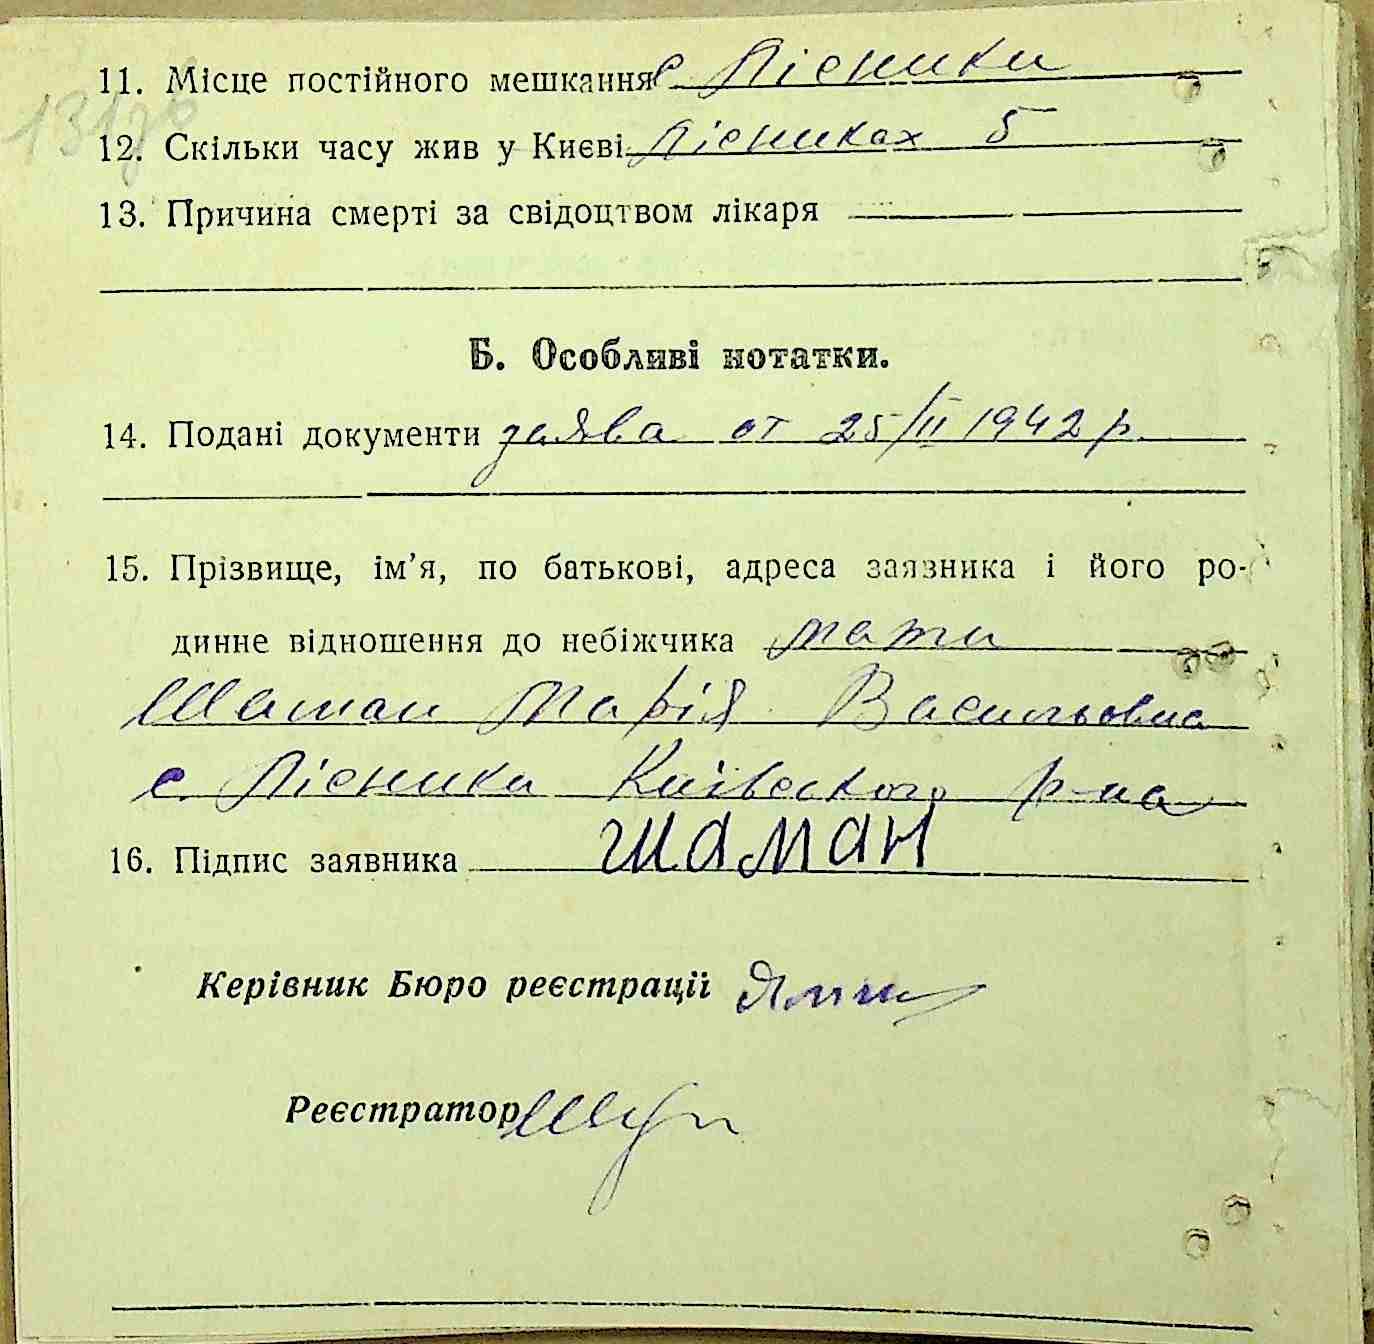 11. Місце постійного мешкання с Лісники
12. Скільки часу жив у Києві Лісниках 5
13. Причина смерті за свідоцтвом лікаря
Б. Особливі нотатки.
14. Подані документи заява от 25/II 1942 р.
15. Прізвище, ім’я, по батькові, адреса заявника і його ро-
динне відношення до небіжчика мати
Шаман Марія Васильовна
с. Лісники Київського р-на
16. Підпис заявника шаман
Керівник Бюро реєстрації
Реєстратор